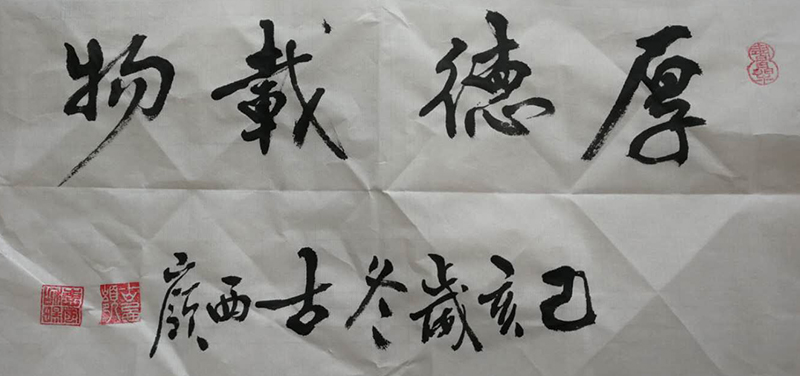 厚德載物
己亥歲冬古西嶺